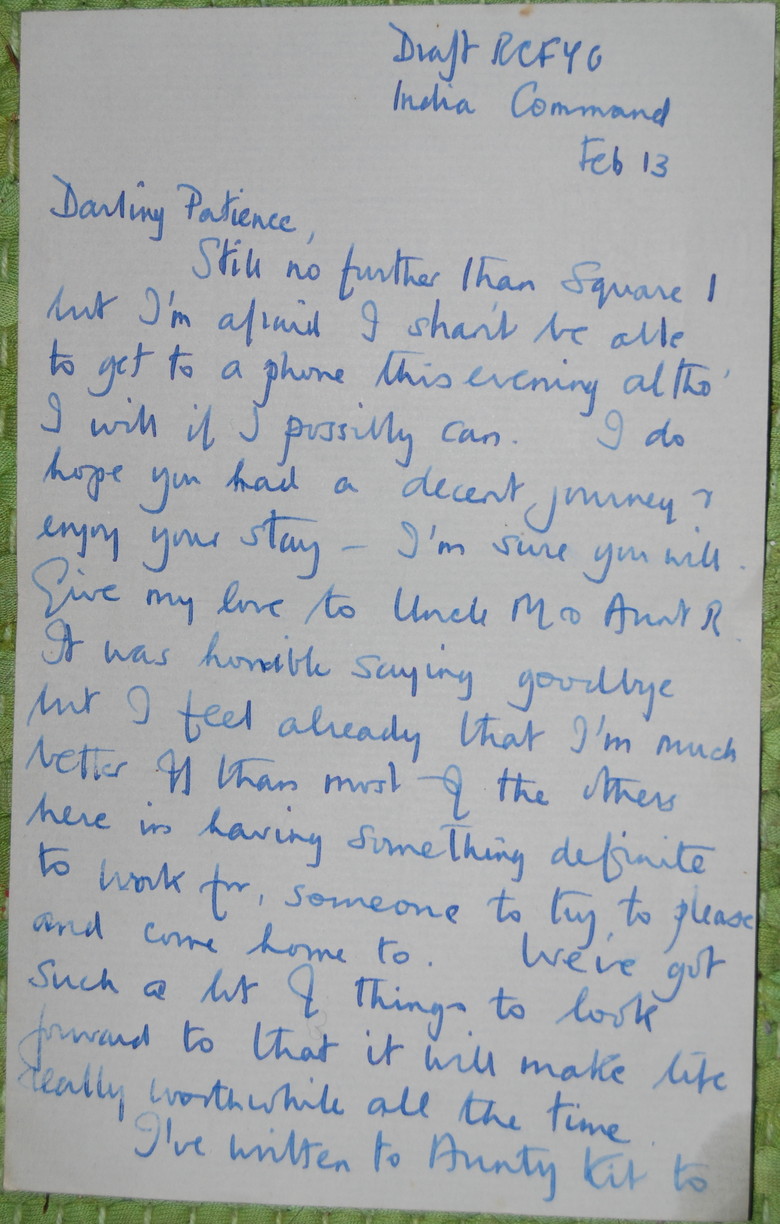 Draft RCFYG
India Command
Feb 13
Darling Patience,
Still no further than Square 1
but I'm afraid I shan't be able
to get to a phone this evening altho'
I will if I possibly can. I do
hope you had a decent journey &
enjoy your stay – I'm sure you will.
Give my love to Uncle M & Aunt R
It was horrible saying goodbye
but I feel already that I'm much
better off than most of the others
here in having something definite
to work for, someone to try to please
and come home to. We've got
such a lot of things to look
forward to that it will make life
really worthwhile all the time.
I've written to Aunty Kit to